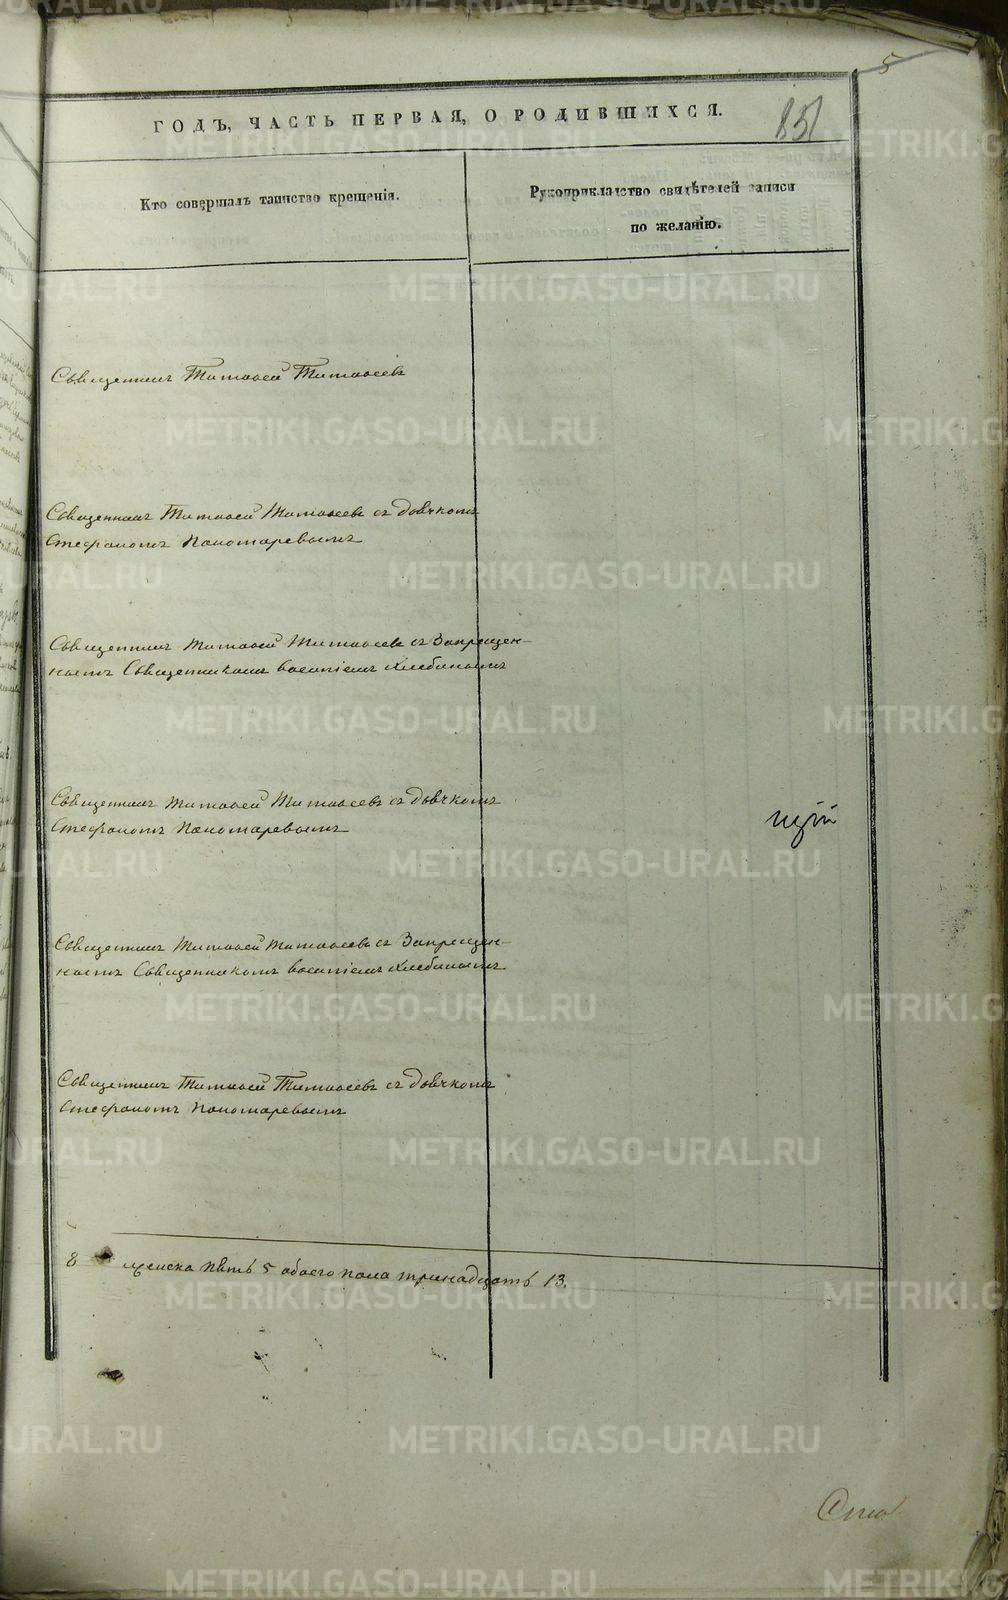 5
ГОДЪ, ЧАСТЬ ПЕРВАЯ, О РОДИВШИХСЯ.
851
Кто совершалъ таинство крещенія.
Рукоприкладство свидѣтелей записи
по желанію.
Священникъ Тимофей Тимофеевъ
Священникъ Тимофей Тимофеевъ съ Дьячкомъ
Стефаномъ Пономаревымъ
Священникъ Тимофей Тимофеевъ съ Запрещен-
нымъ Священникомъ Хлебинымъ
Священникъ Тимофей Тимофеевъ съ Дьячкомъ
Стефаномъ Пономаревымъ
цій
Священникъ Тимофей Тимофеевъ съ Запрещен-
нымъ Священникомъ Хлебинымъ
Священникъ Тимофей Тимофеевъ съ Дьячкомъ
Стефаномъ Пономаревымъ
8 женска пять 5 обоего пола тринадцать 13.
METRIKI.GASO-URAL.RU